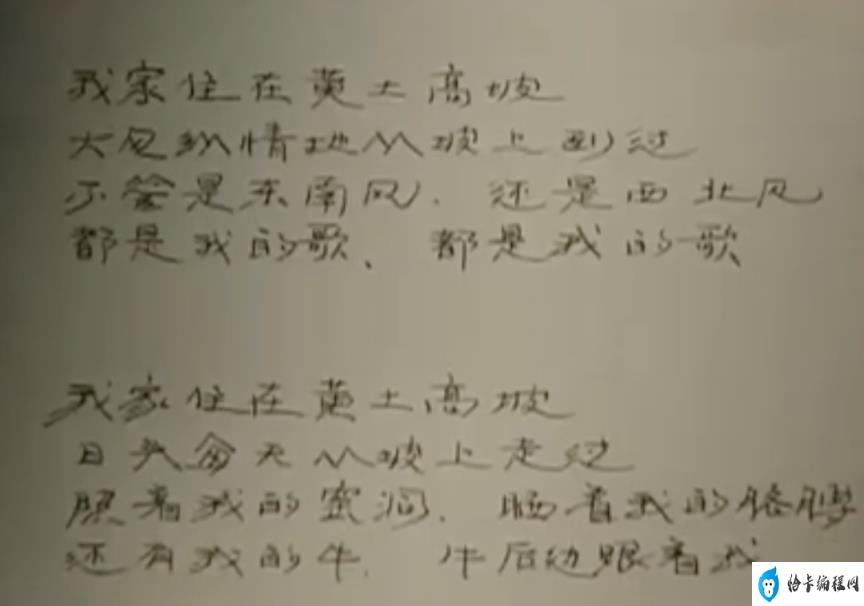 我家住在黄土高坡
大风纵情地从坡上刮过
不管是东南风、还是西北风
都是我的歌、都是我的歌
我家住在黄土高坡
日头每天从坡上走过
照着我的窑洞、晒着我的胳膊
还有我的牛、牛后边跟着我
恰卡编程网